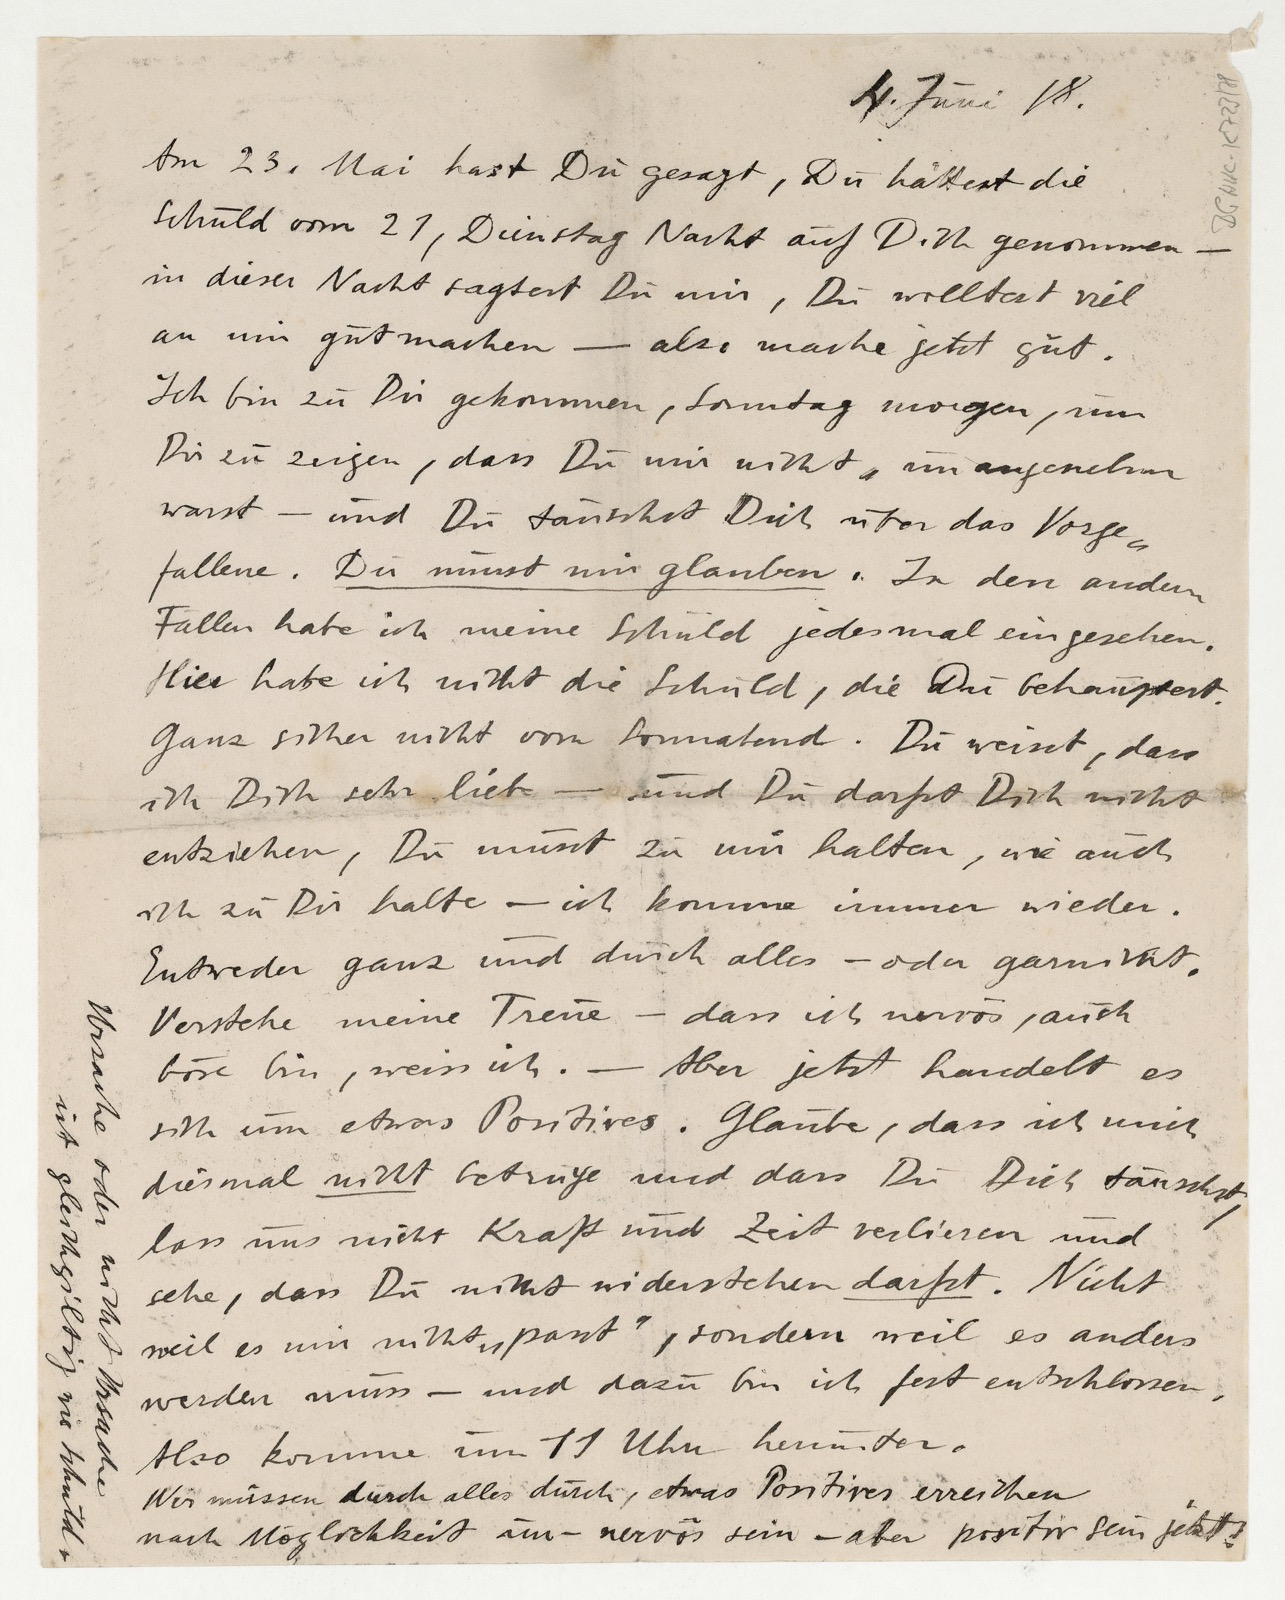 4. Juni 18.
Am 23. Mai hast Du gesagt, Du hättest die
Schuld vom 21, Dienstag Nacht auf Dich genommen —
in dieser Nacht sagtest Du mir, Du wolltest viel
an mir gutmachen — also mache jetzt gut.
Ich bin zu Dir gekommen, Sonntag morgen, um
Dir zu zeigen, dass Du mir nicht „unangenehm
warst — und Du täuschst Dich über das Vorge„
fallene. Du musst mir glauben. In den andern
Fällen habe ich meine Schuld jedesmal eingesehen.
Hier habe ich nicht die Schuld, die Du behauptest.
Ganz sicher nicht vom Sonnabend. Du weisst, dass
ich Dich sehr liebe — und Du darfst Dich nicht
entziehen, Du musst zu mir halten, wie auch
ich zu Dir halte — ich komme immer wieder.
Entweder ganz und durch alles — oder garnicht.
Verstehe meine Treue — dass ich nervös, auch
böse bin, weiss ich. — Aber jetzt handelt es
sich um etwas Positives. Glaube, dass ich mich
diesmal nicht betrüge und dass Du Dich täuschst,
lass uns nicht Kraft und Zeit verlieren und
sehe, dass Du nicht widerstehen darfst. Nicht
weil es mir nicht „passt", sondern weil es anders
werden muss — und dazu bin ich fest entschlossen,
Also komme um 11 Uhr herunter.
Wir müssen durch alles durch, etwas Positives erreichen
nach Möglichkeit un- nervös sein — aber positiv sein jetzt!
Ursache oder nicht Ursache
ist gleichgiltig wie Schuld.